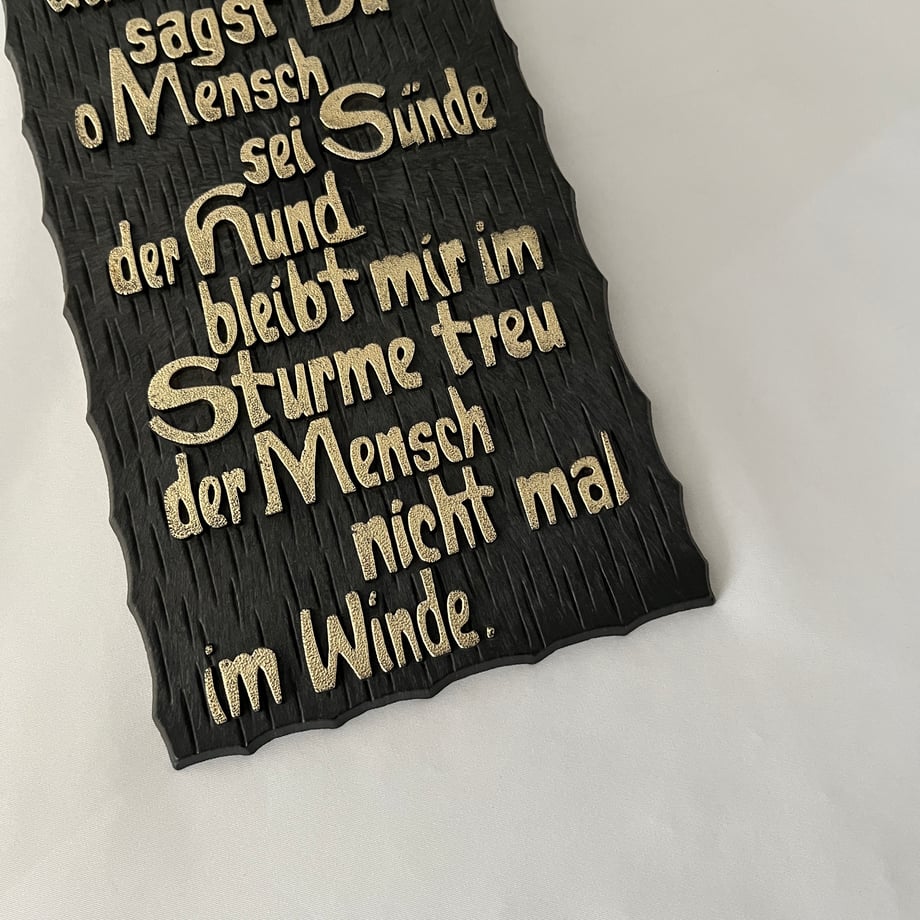 sagst Du
o Mensch
sei Sünde
der Hund
bleibt mir im
Sturme treu
der Mensch
nicht mal
im Winde.